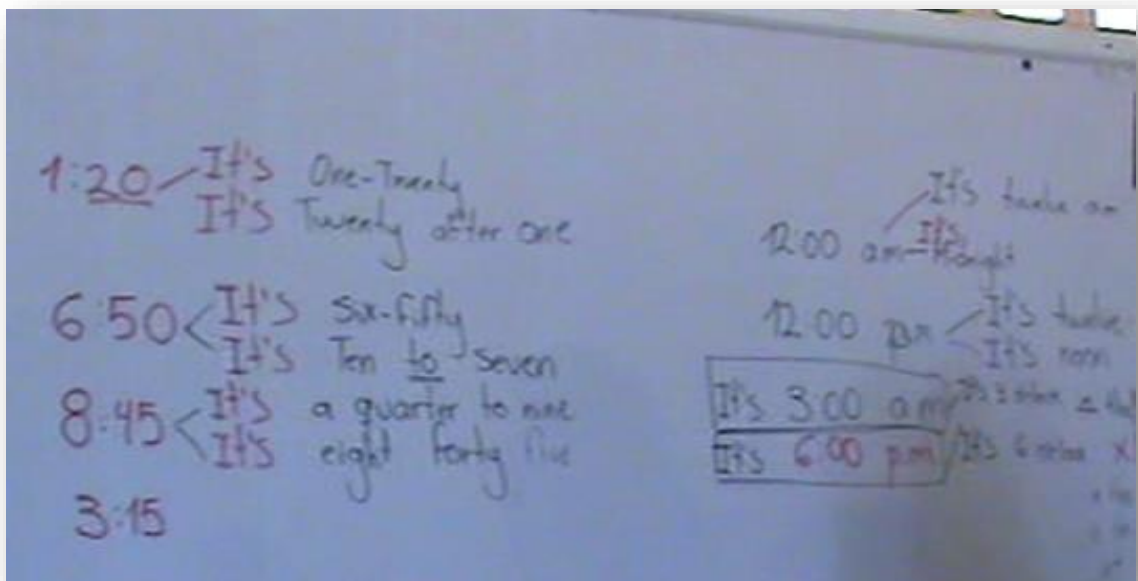 1:20 It's One-Twenty
It's Twenty after one
6:50 It's Six-fifty
It's Ten to seven
8:45 It's a quarter to nine
It's eight forty five
3:15
It's twelve am
12:00 am It's
12:00 pm It's twelve
It's noon
It's 3:00 am It's 3
It's 6:00 pm It's 6 X